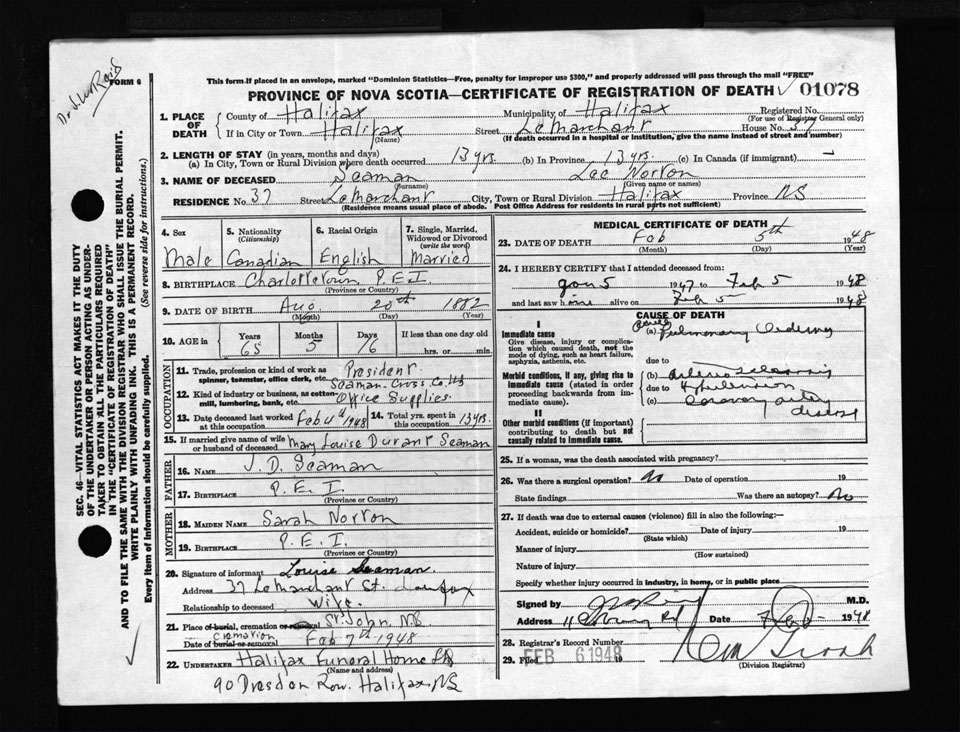 Dr. J. W. Reid
FORM 6
This form if placed in an envelope, marked "Dominion Statistics—Free, penalty for improper use $300," and properly addressed will pass through the mail "FREE"
PROVINCE OF NOVA SCOTIA—CERTIFICATE OF REGISTRATION OF DEATH 01078
1. PLACE OF DEATH
County of Halifax Municipality of Halifax Registered No.
(For use of Registry General only)
If in City or Town Halifax Street LeMarchant House No. 37
(Name) (If death occurred in a hospital or institution, give the name instead of street and number)
2. LENGTH OF STAY (in years, months and days)
(a) In City, Town or Rural Division where death occurred 13 yrs. (b) In Province 13 yrs. (c) In Canada (if immigrant) —
3. NAME OF DECEASED Seaman Lee Norton
(Surname) (Given name or names)
RESIDENCE No. 37 Street LeMarchant City, Town or Rural Division Halifax Province NS
(Residence means usual place of abode. Post Office Address for residents in rural parts not sufficient)
4. Sex 5. Nationality (Citizenship) 6. Racial Origin 7. Single, Married, Widowed or Divorced (write the word)
Male Canadian English Married
8. BIRTHPLACE Charlottetown P.E.I.
(Province or Country)
9. DATE OF BIRTH Aug. 20th 1882
(Month) (Day) (Year)
10. AGE in Years Months Days If less than one day old
65 5 16 hrs. or min.
OCCUPATION
11. Trade, profession or kind of work as spinner, teamster, office clerk, etc. President
Seaman-Cross Co. Ltd
12. Kind of industry or business, as cotton-mill, lumbering, bank, etc. Office Supplies
13. Date deceased last worked at this occupation Feb 4th 1948 14. Total yrs. spent in this occupation 13 yrs.
15. If married give name of wife or husband of deceased Mary Louise Durant Seaman
FATHER
16. NAME J. D. Seaman
17. BIRTHPLACE P.E.I.
(Province or Country)
MOTHER
18. MAIDEN NAME Sarah Norton
19. BIRTHPLACE P.E.I.
(Province or Country)
20. Signature of informant Louise Seaman
Address 37 LeMarchant St. Halifax
Relationship to deceased Wife
21. Place of burial, cremation or removal St. John, NB
cremation
Date of burial or removal Feb 7th 1948
22. UNDERTAKER Halifax Funeral Home Ltd
(Name and address)
90 Dresden Row. Halifax, NS
MEDICAL CERTIFICATE OF DEATH
23. DATE OF DEATH Feb 5th 1948
(Month) (Day) (Year)
24. I HEREBY CERTIFY that I attended deceased from:
Jan 5 1947 to Feb 5 1948
and last saw him alive on Feb 5 1948
CAUSE OF DEATH
I
Immediate cause
Give disease, injury or complication which caused death, not the mode of dying, such as heart failure, asphyxia, asthenia, etc.
(a) Acute Pulmonary Oedema
due to
Morbid conditions, if any, giving rise to immediate cause (stated in order proceeding backwards from immediate cause).
(b) Arterio sclerosis
due to Hypertension
(c) Coronary artery disease
II
Other morbid conditions (if important) contributing to death but not causally related to immediate cause.
25. If a woman, was the death associated with pregnancy?
26. Was there a surgical operation? No Date of operation 19
State findings Was there an autopsy? No
27. If death was due to external causes (violence) fill in also the following:—
Accident, suicide or homicide? Date of injury 19
(State which)
Manner of injury
(How sustained)
Nature of injury
Specify whether injury occurred in industry, in home, or in public place
Signed by M.D.
Address Date Feb 1948
28. Registrar's Record Number
29. Filed FEB 6 1948 19
(Division Registrar)
SEC. 46—VITAL STATISTICS ACT MAKES IT THE DUTY
OF THE UNDERTAKER OR PERSON ACTING AS UNDER-
TAKER TO OBTAIN ALL THE PARTICULARS REQUIRED
IN THE "CERTIFICATE OF REGISTRATION OF DEATH"
AND TO FILE THE SAME WITH THE DIVISION REGISTRAR WHO SHALL ISSUE THE BURIAL PERMIT.
WRITE PLAINLY WITH UNFADING INK. THIS IS A PERMANENT RECORD.
Every item of Information should be carefully supplied. (See reverse side for instructions.)